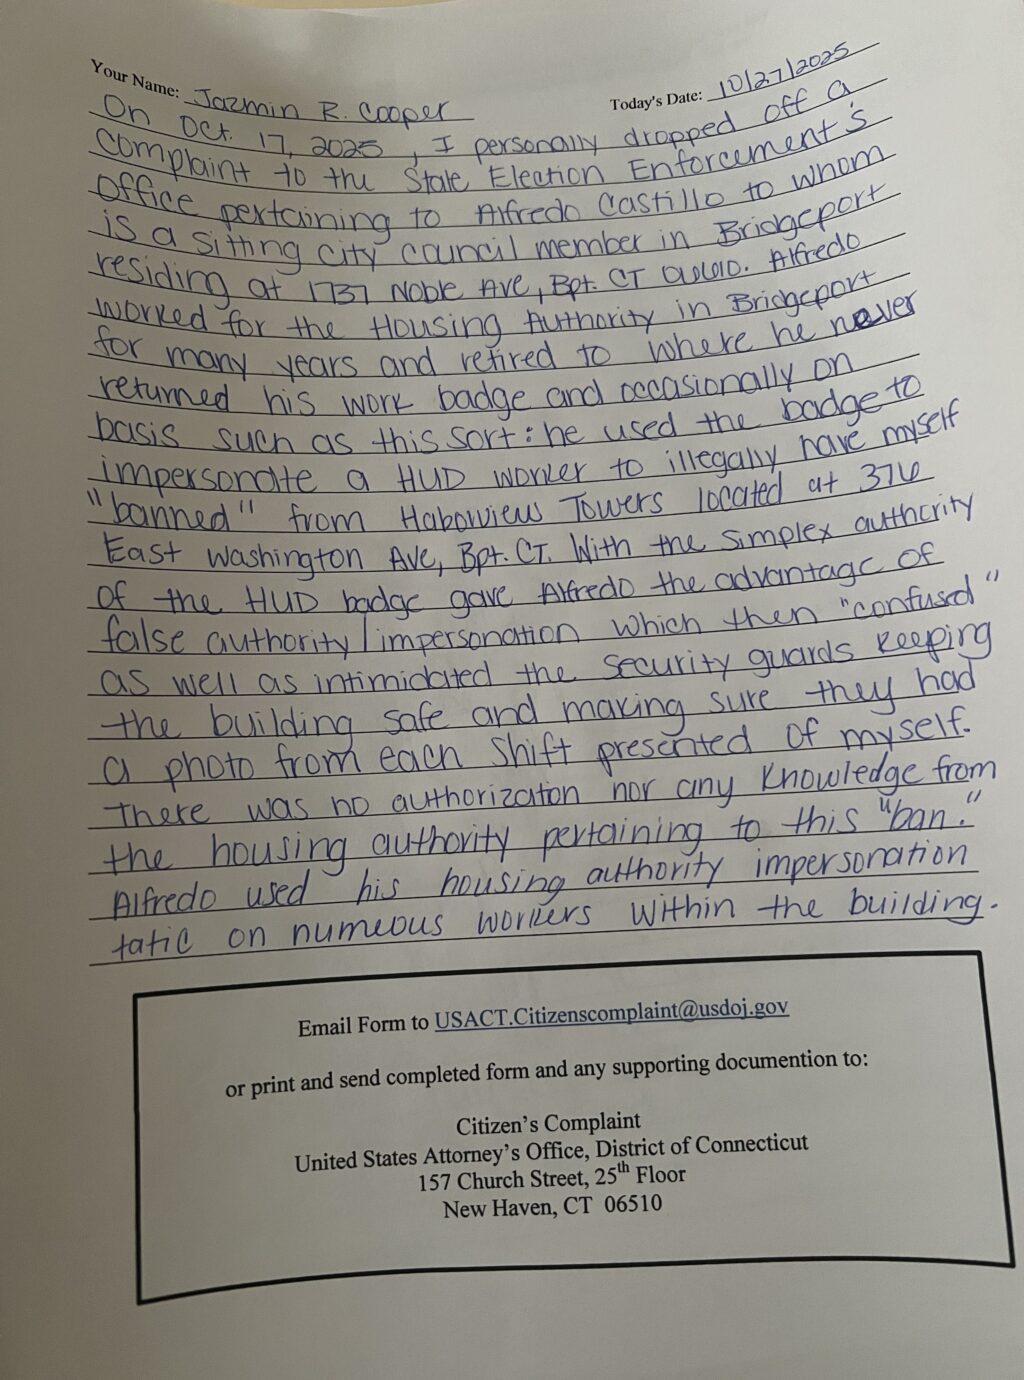 Your Name: Jazmin R. Cooper Today's Date: 10/27/2025
On Oct. 17, 2025, I personally dropped off a
complaint to the State Election Enforcement's
Office pertaining to Alfredo Castillo to whom
is a sitting city council member in Bridgeport
residing at 1737 Noble Ave, Bpt. CT 06610. Alfredo
worked for the Housing Authority in Bridgeport
for many years and retired to where he never
returned his work badge and occasionally on
basis such as this sort: he used the badge to
impersonate a HUD worker to illegally have myself
"banned" from Haborview Towers located at 376
East Washington Ave, Bpt. CT. With the simplex authority
of the HUD badge gave Alfredo the advantage of
false authority/impersonation which then "confused"
as well as intimidated the security guards keeping
the building safe and making sure they had
a photo from each shift presented of myself.
There was no authorizaton nor any knowledge from
the housing authority pertaining to this "ban."
Alfredo used his housing authority impersonation
tatic on numeous workers within the building.
Email Form to USACT.Citizenscomplaint@usdoj.gov
or print and send completed form and any supporting documention to:
Citizen's Complaint
United States Attorney's Office, District of Connecticut
157 Church Street, 25th Floor
New Haven, CT 06510